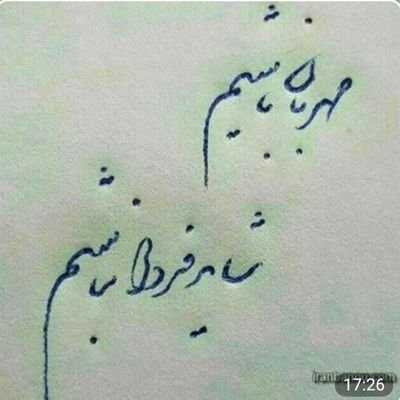 مهربان باشیم
شاید فردا نباشیم
iranbanou.com
17:26